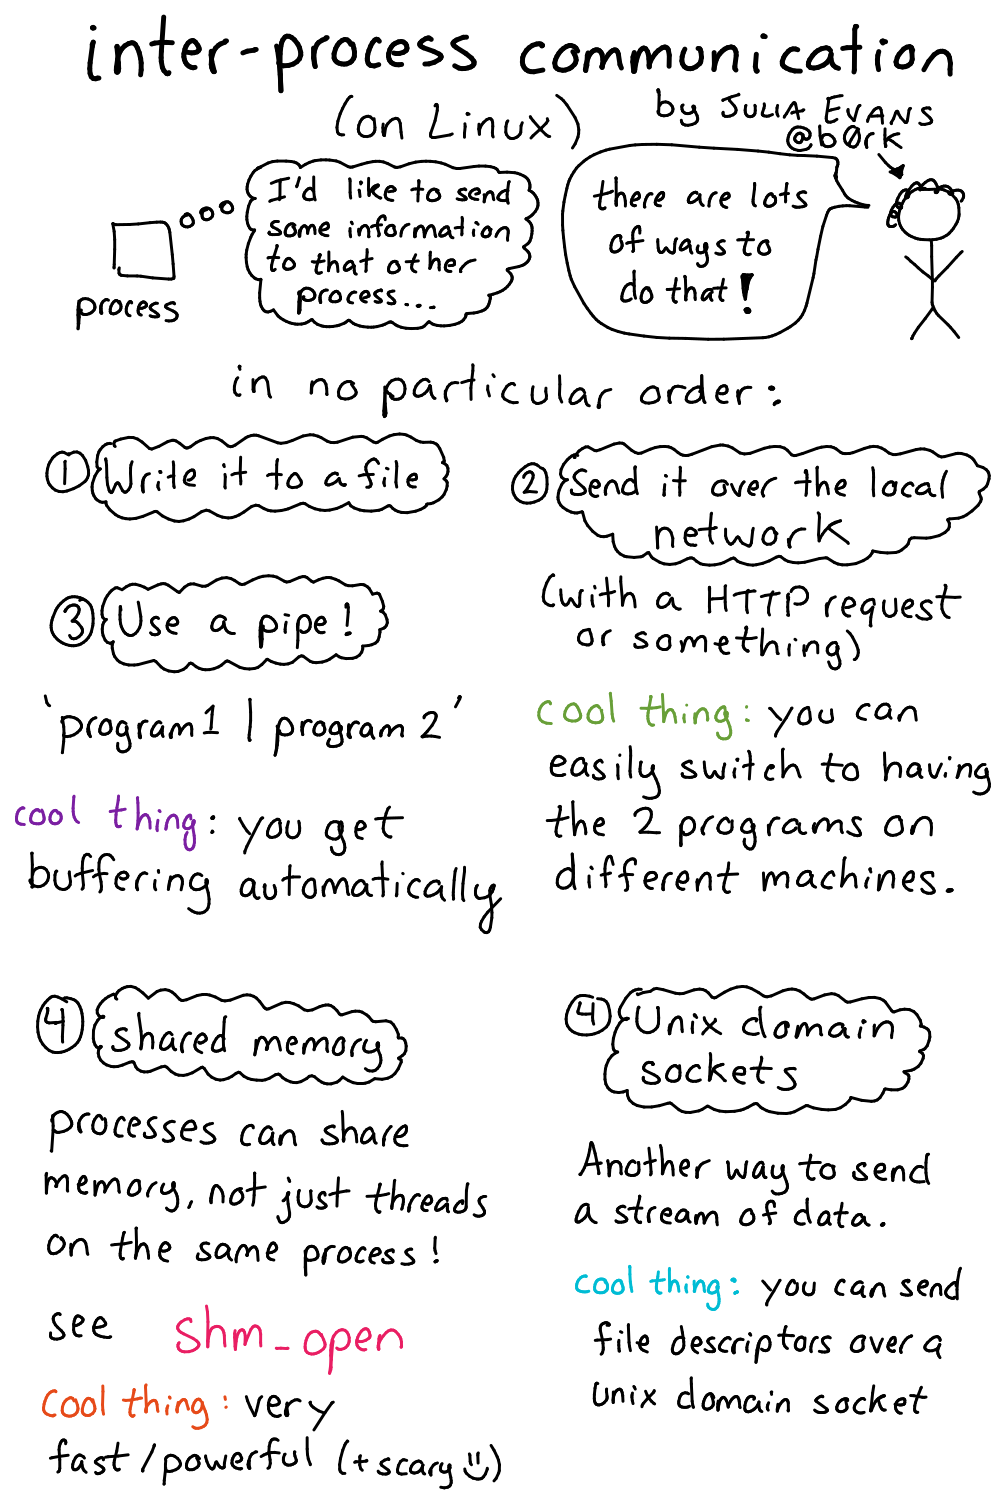 inter-process communication
(on Linux)
by JULIA EVANS
@b0rk
process
I'd like to send
some information
to that other
process...
there are lots
of ways to
do that!
in no particular order:
① Write it to a file
② Send it over the local
network
(with a HTTP request
or something)
cool thing: you can
easily switch to having
the 2 programs on
different machines.
③ Use a pipe!
'program1 | program 2'
cool thing: you get
buffering automatically
④ shared memory
processes can share
memory, not just threads
on the same process!
see shm_open
cool thing: very
fast/powerful (+scary ツ)
④ Unix domain
sockets
Another way to send
a stream of data.
cool thing: you can send
file descriptors over a
unix domain socket